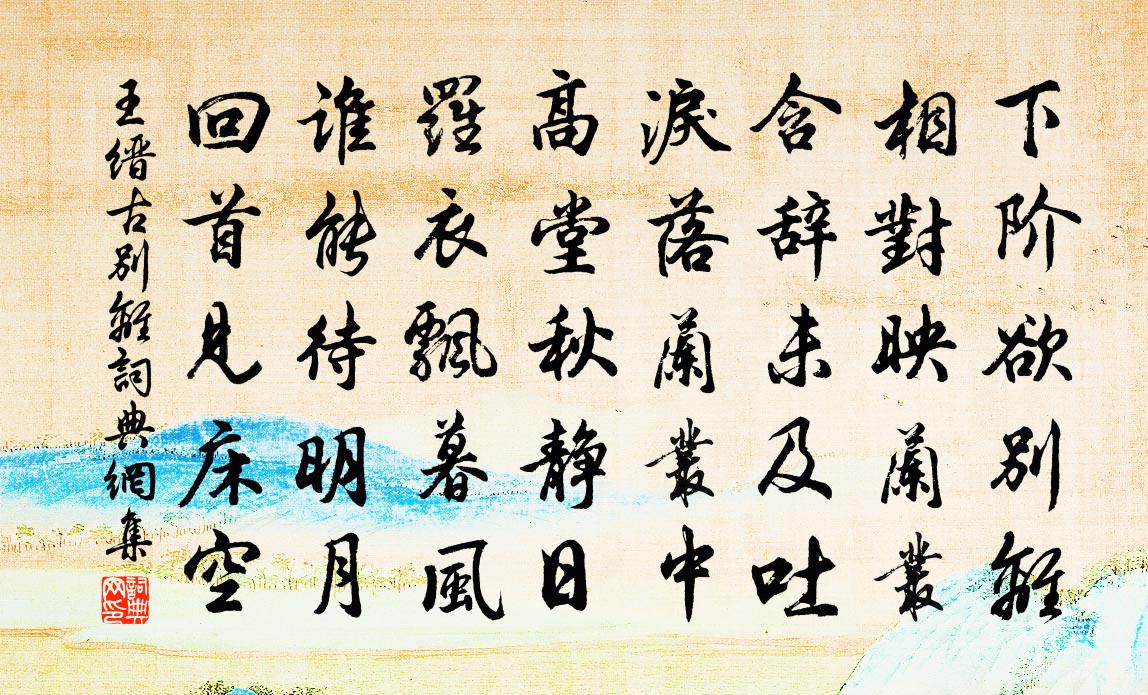 下阶欲别離
相對映蘭叢
含辞未及吐
淚落蘭叢中
高堂秋静日
羅衣飄暮風
谁能待明月
回首見床空
王缙古别離詞典網集
詞典网印